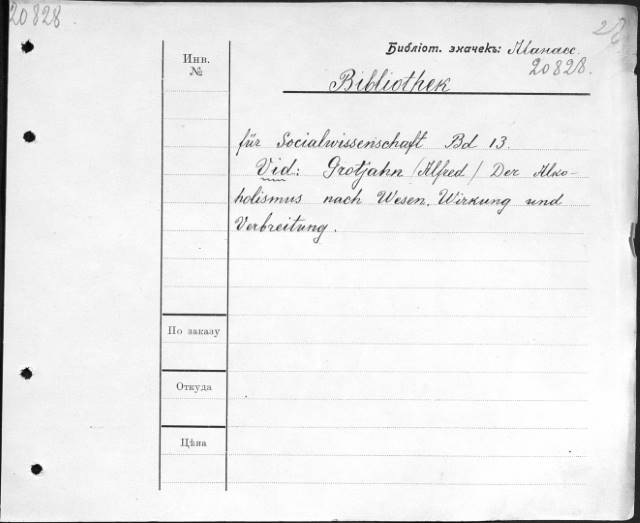 20828
Инв.
№
Библіот. значекъ:
20828.
Bibliothek
für Socialwissenschaft Bd 13.
Vid: Grotjahn /Alfred/ Der Alko-
holismus nach Wesen, Wirkung und
Verbreitung.
По заказу
Откуда
Цѣна